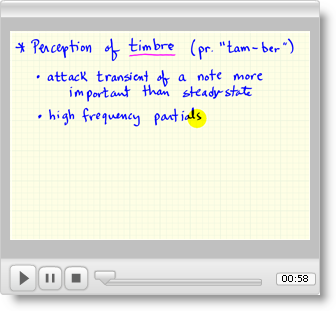 * Perception of timbre (pr. "tam-ber")
• attack transient of a note more
important than steady-state
• high frequency partials
00:58